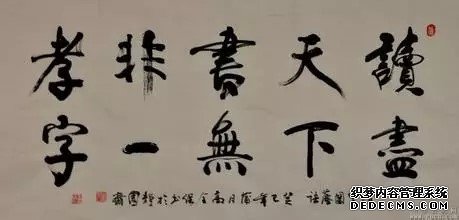 讀盡
天下
書無
非一
孝字
织梦内容管理系统
DEDECMS.COM